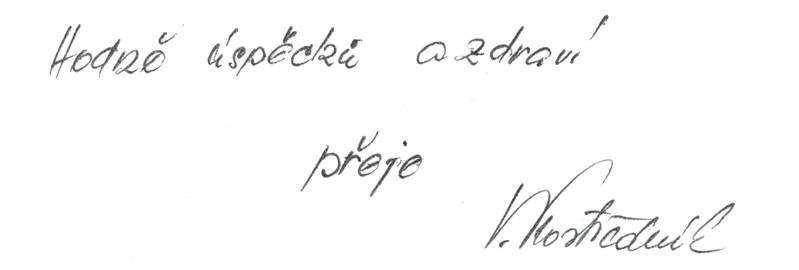 Hodně úspěchů a zdraví
přeje
V.